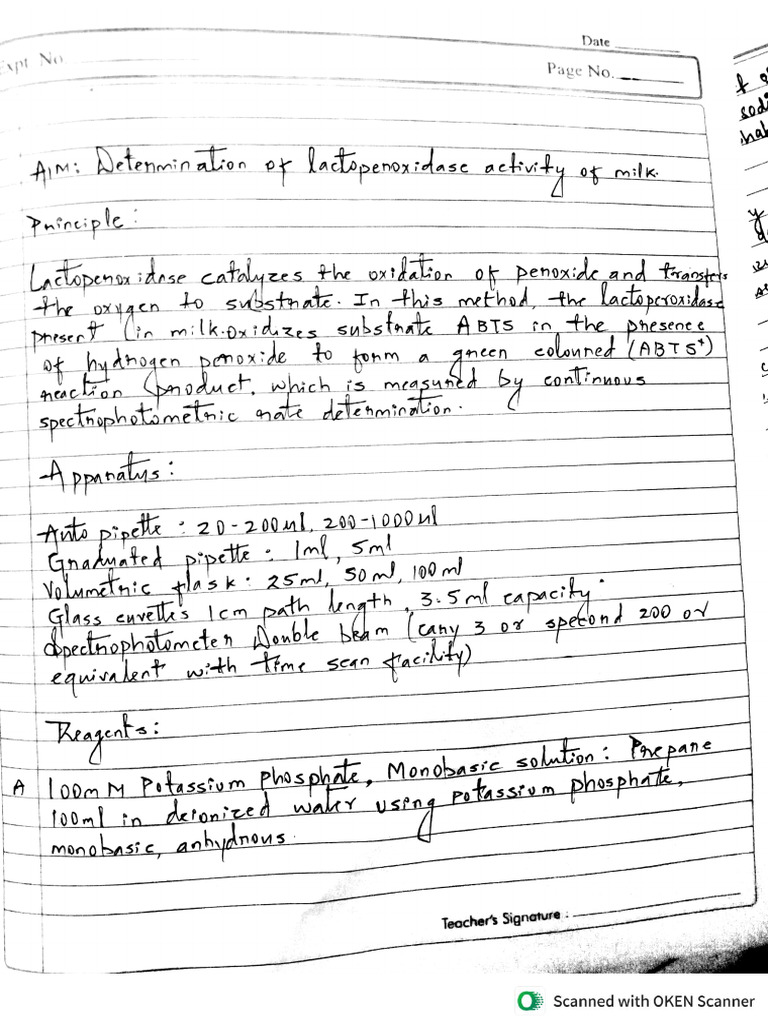 Date
Expt. No.
Page No.
AIM: Determination of lactoperoxidase activity of milk.
Principle:
Lactoperoxidase catalyzes the oxidation of peroxide and transfers
the oxygen to substrate. In this method, the lactoperoxidase
present in milk oxidizes substrate ABTS in the presence
of hydrogen peroxide to form a green coloured (ABTS⁺)
reaction product, which is measured by continuous
spectrophotometric rate determination.
Apparatus:
Auto pipette : 20-200ul, 200-1000ul
Graduated pipette : 1ml, 5ml
Volumetric flask : 25ml, 50ml, 100ml
Glass cuvettes 1cm path length, 3.5ml capacity.
Spectrophotometer Double beam (cany 3 or specord 200 or
equivalent with time scan facility)
Reagents:
A 100mM Potassium phosphate, Monobasic solution: Prepare
100ml in deionized water using potassium phosphate,
monobasic, anhydrous.
Teacher's Signature :
Scanned with OKEN Scanner